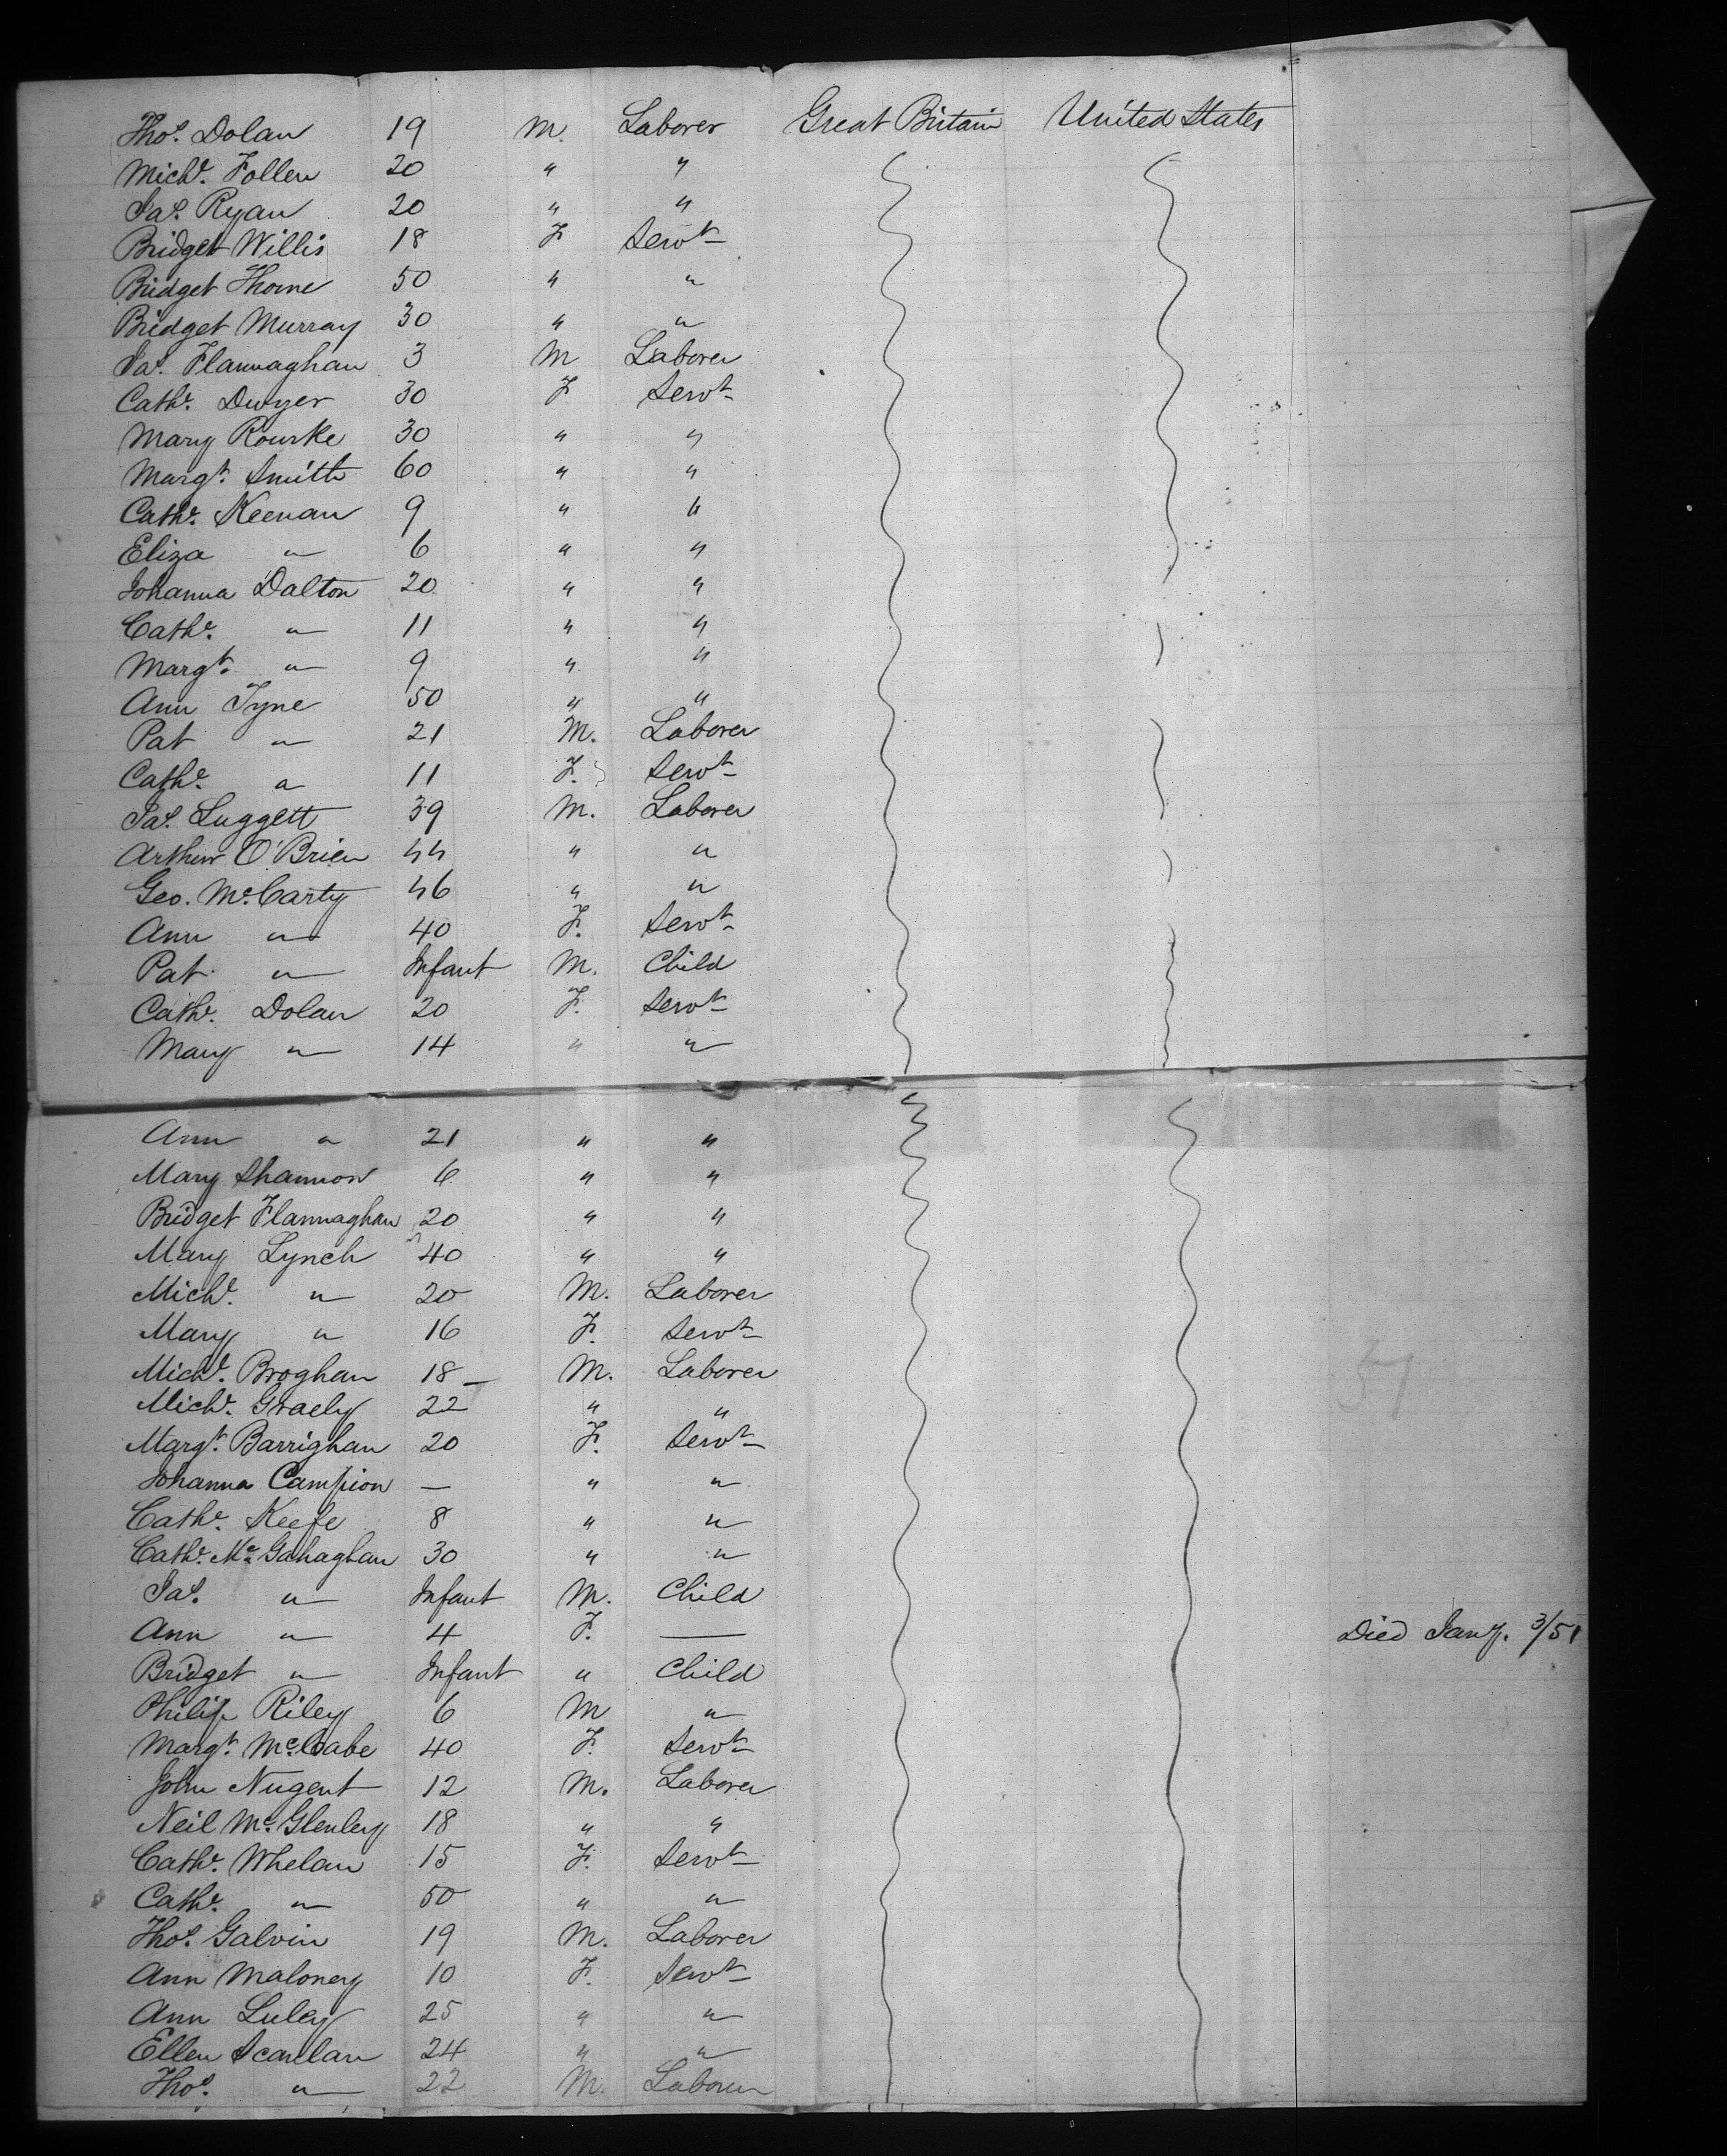 Thos. Dolan 19 M. Laborer Great Britain United States
Michl. Follen 20 " "
Jas. Ryan 20 " "
Bridget Willis 18 F Servt
Bridget Thorne 50 " "
Bridget Murray 30 " "
Jas. Flannaghan 3 M Laborer
Cathe. Dwyer 30 F Servt
Mary Rourke 30 " "
Margt. Smith 60 " "
Cathe. Keenan 9 " "
Eliza " 6 " "
Johanna Dalton 20 " "
Cathe. " 11 " "
Margt. " 9 " "
Ann Tyne 50 " "
Pat " 21 M. Laborer
Cathe. " 11 F. Servt
Jas. Luggett 39 M. Laborer
Arthur O'Brien 44 " "
Geo. McCarty 46 " "
Ann " 40 F. Servt
Pat " Infant M. Child
Cathe. Dolan 20 F. Servt
Mary " 14 " "
Ann " 21 " "
Mary Shannon 6 " "
Bridget Flannaghan 20 " "
Mary Lynch 40 " "
Michl. " 20 M. Laborer
Mary " 16 F. Servt
Michl. Broghan 18 M. Laborer
Michl. Graely 22 " "
Margt. Barrighan 20 F. Servt
Johanna Campion — " "
Cathe. Keefe 8 " "
Cathe. McGahaghan 30 " "
Jas. " Infant M. Child
Ann " 4 F. — Died Jany. 3/51
Bridget " Infant " Child
Philip Riley 6 M "
Margt. McCabe 40 F. Servt
John Nugent 12 M. Laborer
Neil McGlenley 18 " "
Cathe. Whelan 15 F. Servt
Cathe. " 50 " "
Thos. Galvin 19 M. Laborer
Ann Maloney 10 F. Servt
Ann Luley 25 " "
Ellen Scanlan 24 " "
Thos. " 22 M. Laborer